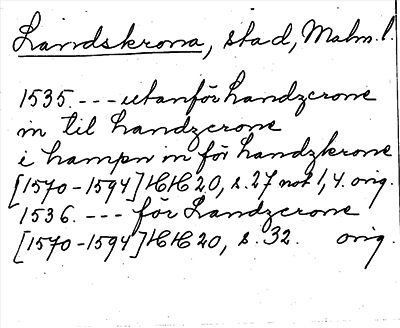 Landskrona, stad, Malm. l.
1535. --- utanför handzcrone
in til handzcrone
i hampn in för handzkrone
[1570-1594] HH 20, s. 27 not 1, 4. orig.
1536. --- för Landzcrone
[1570-1594] HH 20, s. 32. orig.